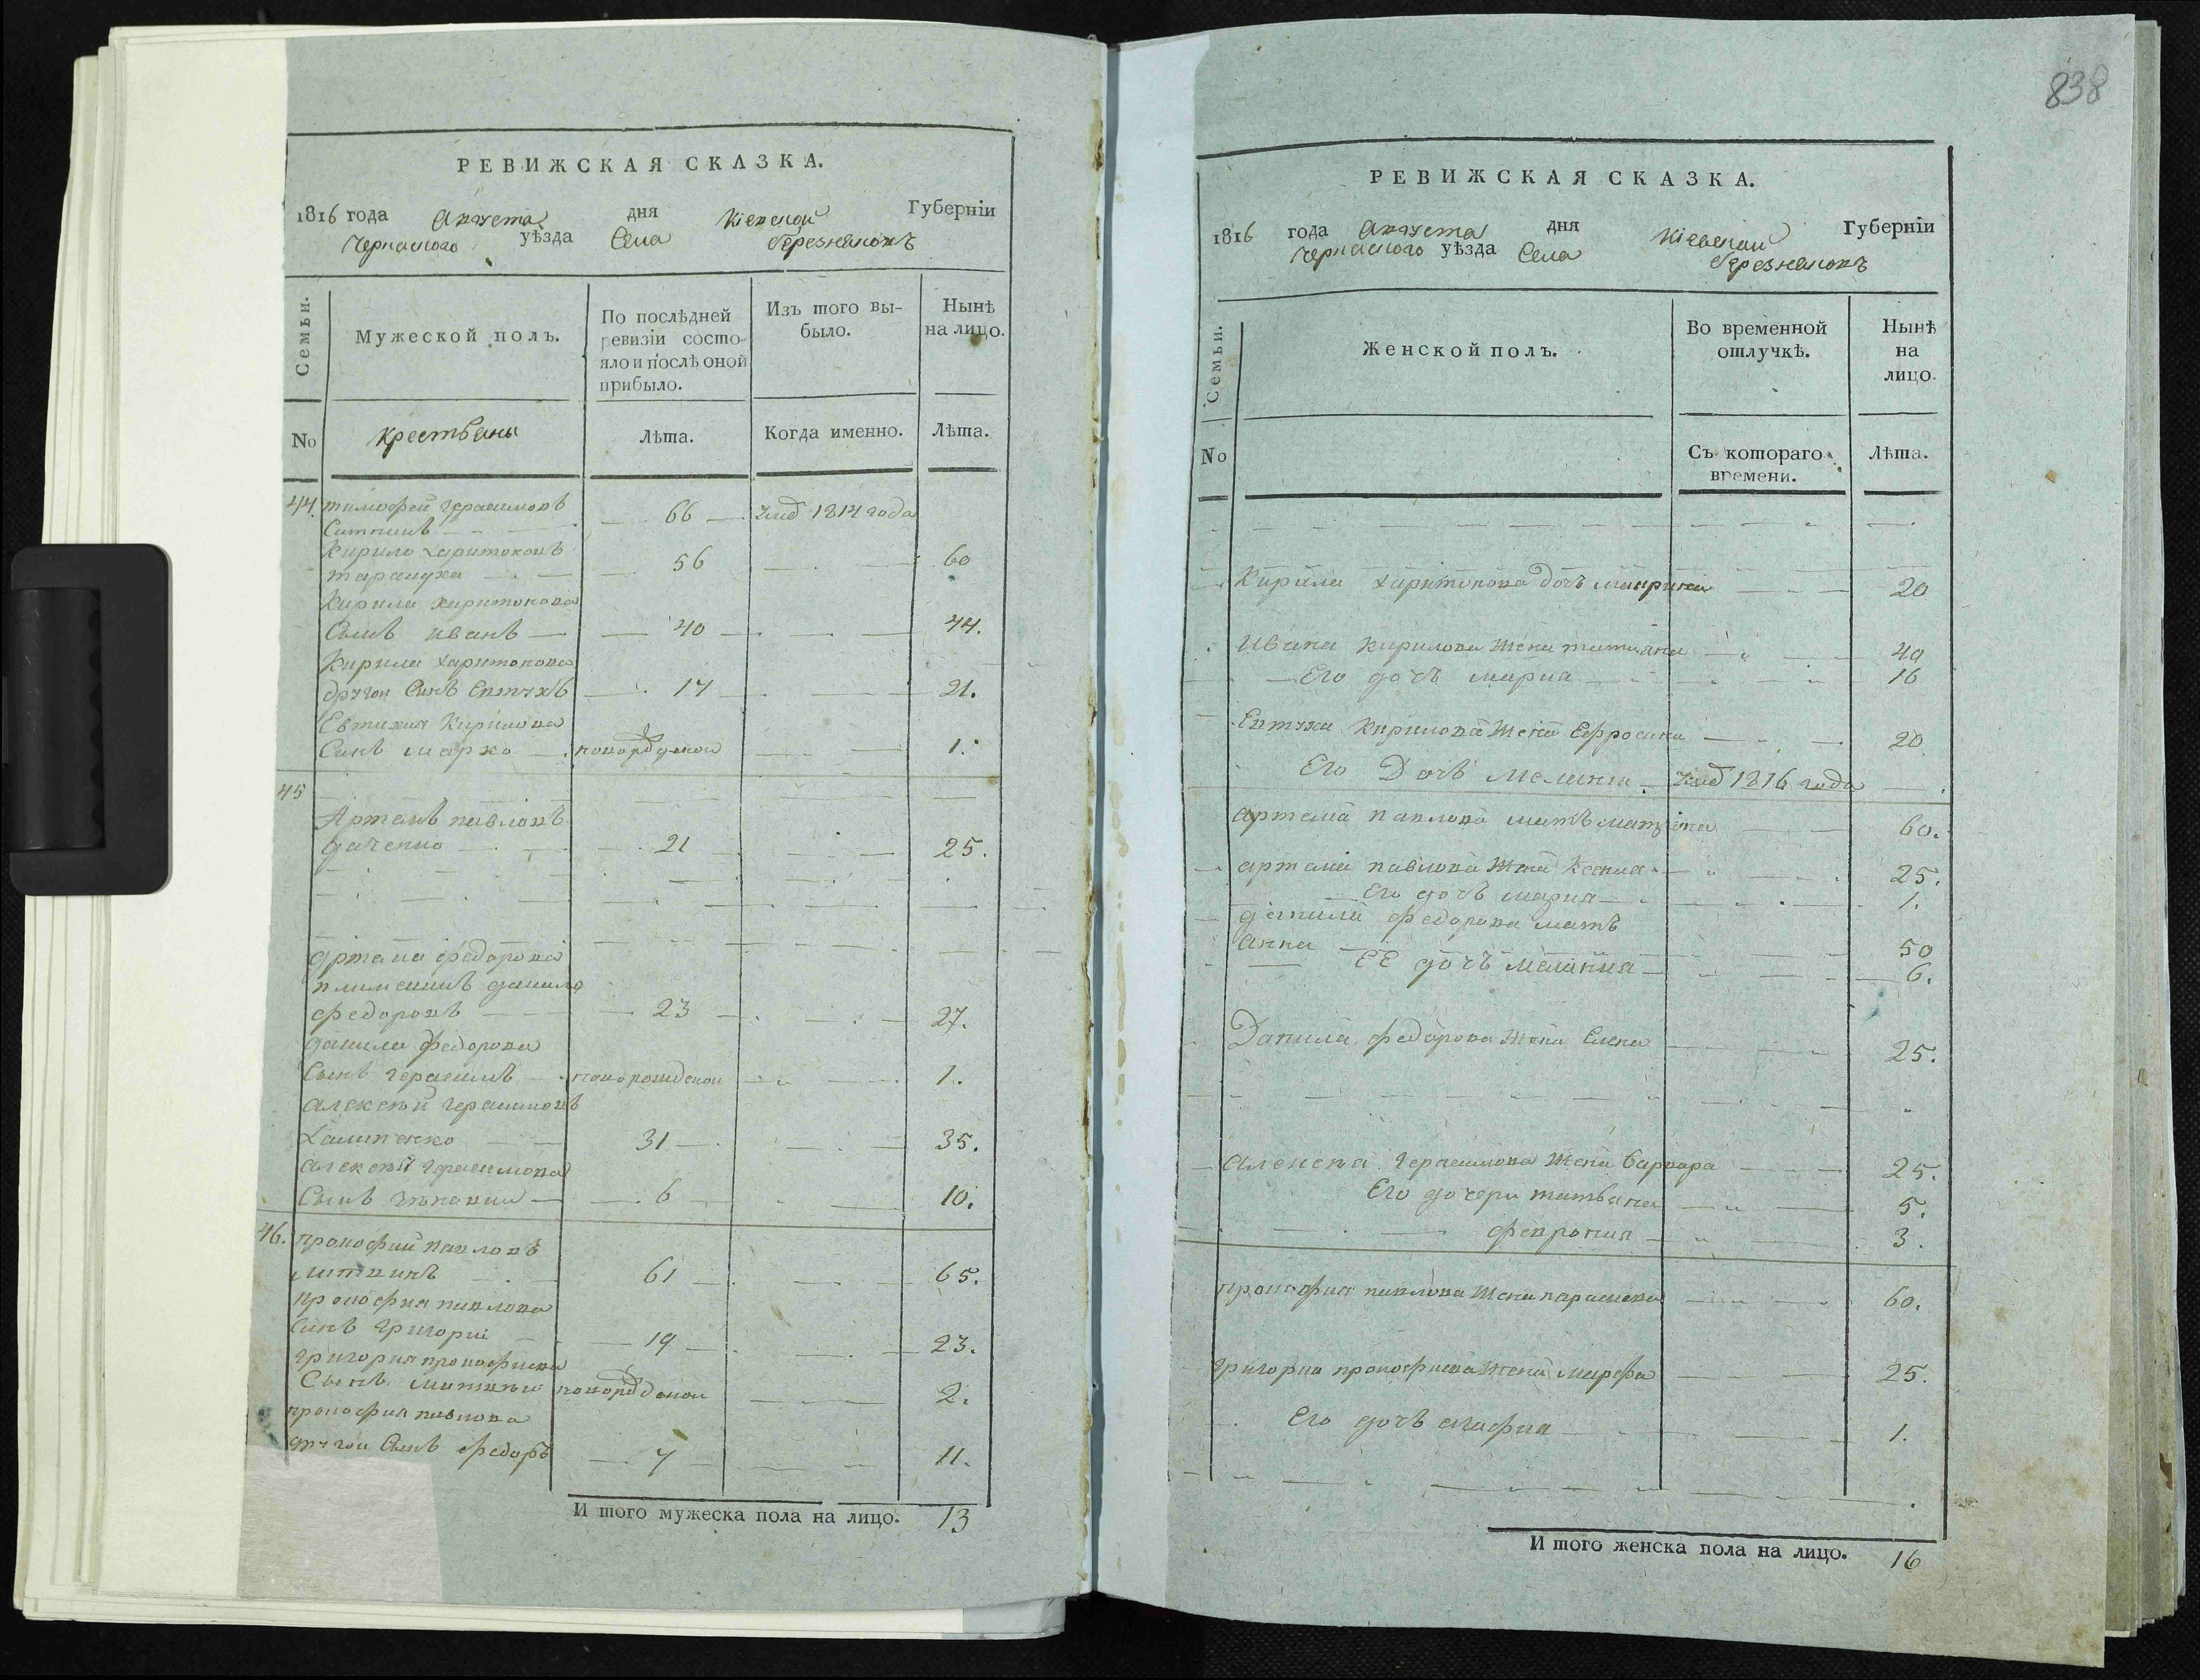 838
РЕВИЖСКАЯ СКАЗКА.
1816 года Августа дня Кіевской Губерніи
Черкаского уѣзда Села Березняковъ
Семьи.
Мужеской полъ.
По послѣдней
ревизіи состо-
яло и послѣ оной
прибыло.
Изъ того вы-
было.
Нынѣ
на лицо.
No
крестьяны
Лѣта.
Когда именно.
Лѣта.
44. тимофей Герасимовъ
66 1814 года
Кирило Харитоновъ
56 60
Кирила харитонова
Сынъ иванъ 40 44.
Кирила харитонова
другой Синъ Евтухъ 17 21.
Евтихия Кирилова
Синъ марко новорожденой 1.
45
Артемъ павловъ
21 25.
Артема федорова
племенникъ данило
федоровъ 23 27.
данила Федорова
Сынъ Герасимъ новорожденой 1.
алексей Герасимовъ
31 35.
алексея Герасимова
Сынъ 6 10.
46. прокофий павловъ
литвинъ 61 65.
прокофия павлова
Синъ Григорий 19 23.
григория прокофиева
Сынъ новорожденой 2.
прокофия павлова
другой Сынъ федоръ 7 11.
И того мужеска пола на лицо. 13
РЕВИЖСКАЯ СКАЗКА.
1816 года Августа дня Кіевской Губерніи
Черкаского уѣзда Села Березняковъ
Семьи.
Женской полъ.
Во временной
отлучкѣ.
Нынѣ
на
лицо.
No
Съ котораго
времени.
Лѣта.
Кирила харитонова дочъ 20
Ивана Кирилова жена татияна 40
Его дочъ мария 16
Евтуха Кирилова жена Ефросина 20
Его Дочъ 1816 года
артема павлова мать 60.
артема павлова жена Ксения 25.
Его дочъ мария 1.
данила федорова мать
анна 50
ЕЕ дочъ мелания 6.
Данила федорова жена Елена 25.
алексея Герасимова жена варвара 25.
Его дочери татьяна 5.
феврония 3.
прокофия павлова жена параскева 60.
григория прокофиева жена марфа 25.
Его дочъ агафия 1.
И того женска пола на лицо. 16